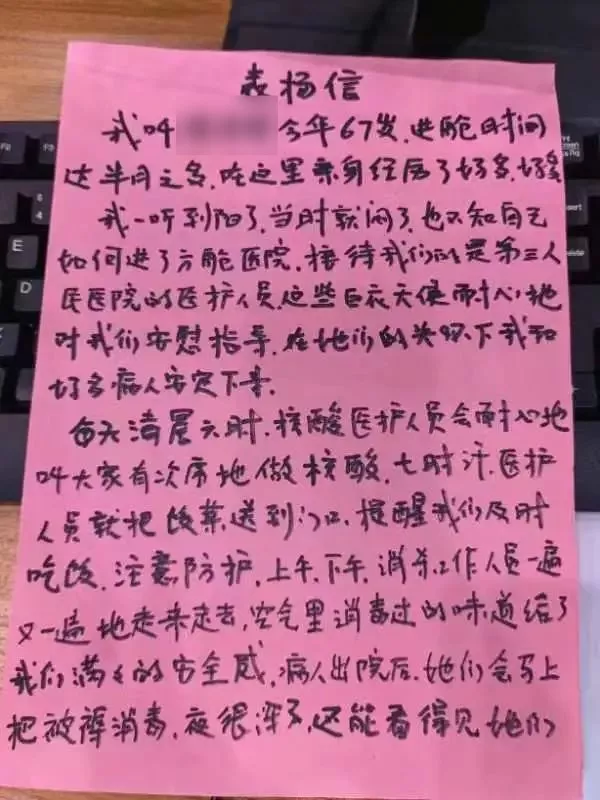 表扬信
我叫 今年67岁,进舱时间
达半月之多,在这里亲身经历了好多,好多
我一听到阳了,当时就闷了,也不知自己
如何进了方舱医院,接待我们的是第三人
民医院的医护人员,这些白衣天使耐心地
对我们安慰指导,在她们的关怀下我和
好多病人安定下来.
每天清晨六时,核酸医护人员会耐心地
叫大家有次序地做核酸,七时许,医护
人员就把饭菜送到门口,提醒我们及时
吃饭,注意防护,上午、下午,消杀工作人员一遍
又一遍地走来走去,空气里消毒过的味道给了
我们满满的安全感,病人出院后,她们会马上
把被褥消毒,夜很深了,还能看得见她们
E
D